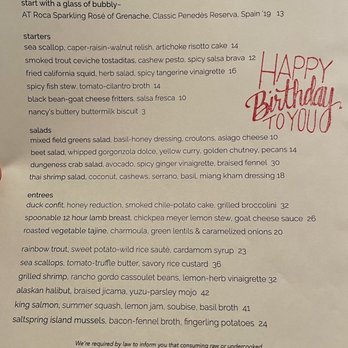 start with a glass of bubbly~
AT Roca Sparkling Rosé of Grenache, Classic Penedès Reserva, Spain '19 13
starters
sea scallop, caper-raisin-walnut relish, artichoke risotto cake 14
smoked trout ceviche tostaditas, cashew pesto, spicy salsa brava 12
fried california squid, herb salad, spicy tangerine vinaigrette 16
spicy fish stew, tomato-cilantro broth 14
black bean-goat cheese fritters, salsa fresca 10
nancy's buttery buttermilk biscuit 3
HAPPY
Birthday
TO YOU
salads
mixed field greens salad, basil-honey dressing, croutons, asiago cheese 10
beet salad, whipped gorgonzola dolce, yellow curry, golden chutney, pecans 14
dungeness crab salad, avocado, spicy ginger vinaigrette, braised fennel 30
thai shrimp salad, coconut, cashews, serrano, basil, miang kham dressing 18
entrees
duck confit, honey reduction, smoked chile-potato cake, grilled broccolini 32
spoonable 12 hour lamb breast, chickpea meyer lemon stew, goat cheese sauce 26
roasted vegetable tajine, charmoula, green lentils & caramelized onions 20
rainbow trout, sweet potato-wild rice sauté, cardamom syrup 23
sea scallops, tomato-truffle butter, savory rice custard 36
grilled shrimp, rancho gordo cassoulet beans, lemon-herb vinaigrette 32
alaskan halibut, braised jicama, yuzu-parsley mojo 42
king salmon, summer squash, lemon jam, soubise, basil broth 41
saltspring island mussels, bacon-fennel broth, fingerling potatoes 24
We're required by law to inform you that consuming raw or undercooked